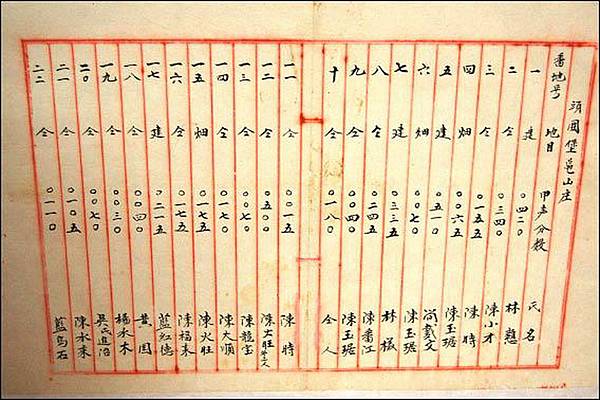 頭囲堡亀山庄
番地号 地目 甲 分数 氏名
一 建 〇四二〇 林
二 仝 〇三四〇 陳小才
三 仝 〇一五五 陳時
四 畑 〇〇六五 陳玉琚
五 建 〇五一〇 戴文
六 畑 〇〇七〇 陳玉琚
七 建 〇三三五 林
八 仝 〇二四五 陳番江
九 仝 〇〇四〇 陳玉琚
十 仝 〇一八〇 仝人
一一 仝 〇〇一五 陳時
一二 仝 〇五〇〇 陳 旺
一三 仝 〇〇七〇 陳 宝
一四 仝 〇一二〇 陳大順
一五 畑 〇一七五 陳火旺
一六 仝 〇一七五 陳福来
一七 建 〇二一五 藍紅徳
一八 仝 〇〇四〇 黄固
一九 仝 〇〇三〇 楊水木
二〇 仝 〇〇七〇 呉氏進治
二一 仝 〇一〇五 陳水来
二二 仝 〇一一〇 藍烏石